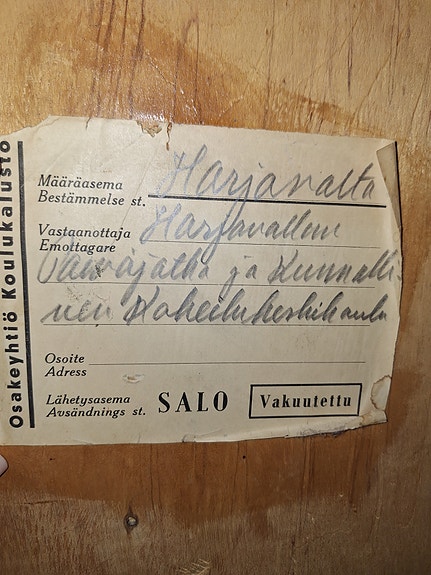 Osakeyhtiö Koulukalusto
Määräasema Harjavalta
Bestämmelse st.
Vastaanottaja Harjavallan
Emottagare
ja Kunnalli-
nen Kokeilukeskikoulu
Osoite
Adress
Lähetysasema SALO Vakuutettu
Avsändnings st.